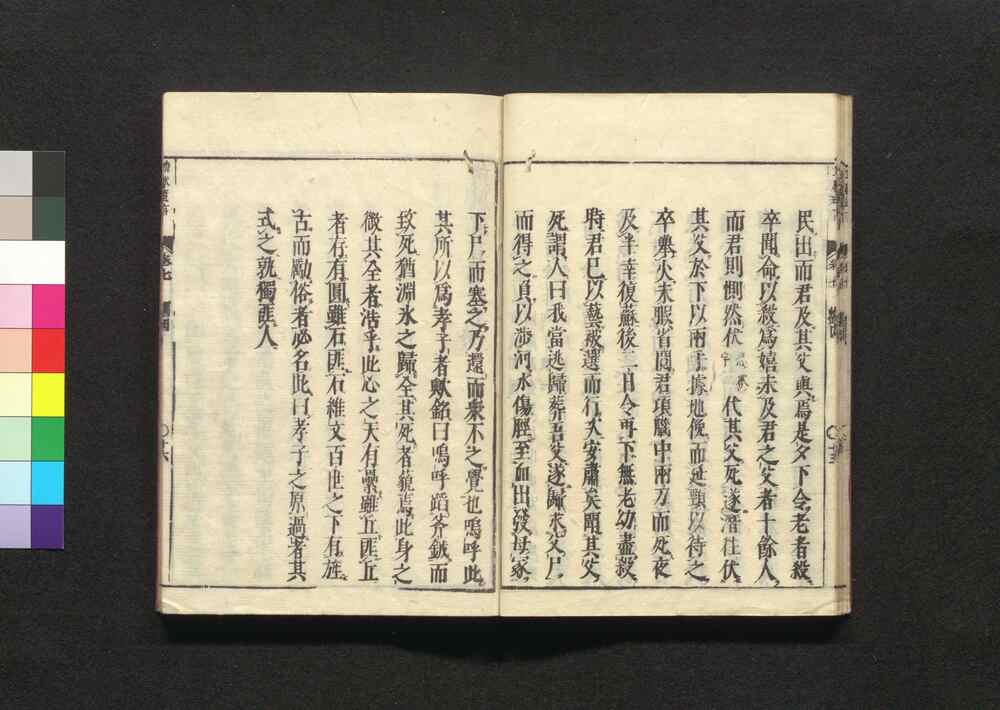 民出而君及其父與焉是夕下令老者殺
卒聞命以殺爲嬉未及君之父者十餘人
而君則惻然伏 代其父死遂潛往伏
其父於下以兩手據地俛而延頸以待之
卒舉火未暇省閱君項腦中兩刃而死夜
及半幸復蘇後二日令再下無老幼盡殺
時君巳以藝被選而行次安肅矣聞其父
死謂人曰我當逃歸葬吾父遂歸求父尸
而得之負以涉河水傷脛至血出發母冢
下尸而塞之乃還而衆不之覺也嗚呼此
其所以爲孝子者歟銘曰嗚呼蹈斧鉞而
致死猶淵氷之歸全其死者藐焉此身之
微其全者浩乎此心之天有壘雖丘匪丘
者存有圓雖石匪石維文百世之下有旌
古而勵俗者必名此曰孝子之原過者其
式之孰獨匪人
卷七